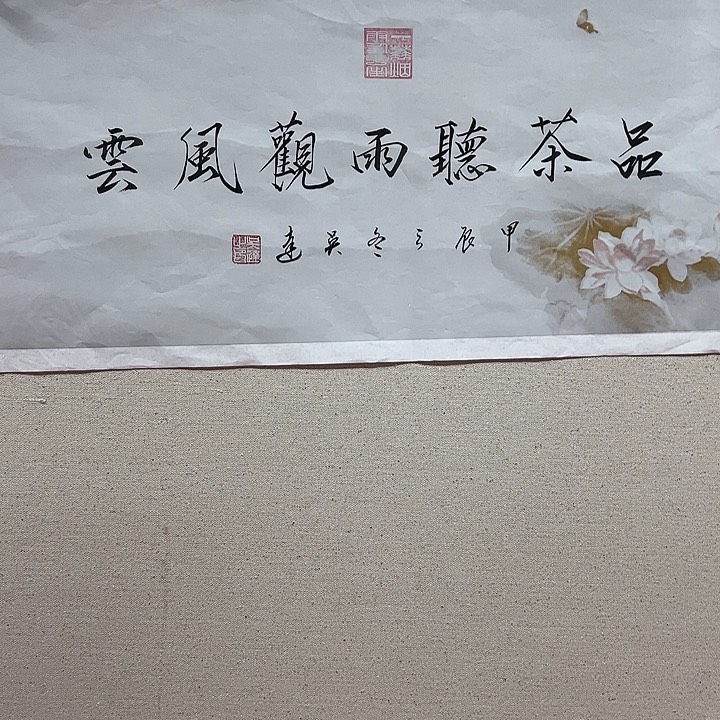 品茶聽雨觀風雲
甲辰之冬吳達